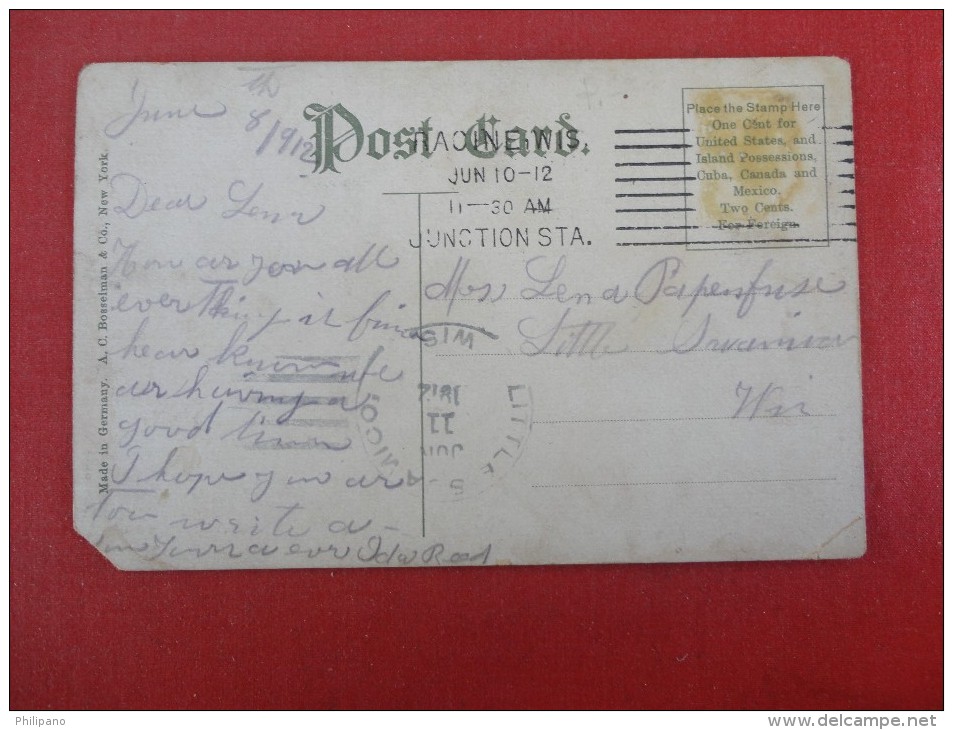 June 8th
1912
Post Card.
RACINE, WIS.
JUN 10-12
11-30 AM
JUNCTION STA.
Place the Stamp Here
One Cent for
United States, and
Island Possessions,
Cuba, Canada and
Mexico.
Two Cents.
For Foreign.
Made in Germany. A. C. Bosselman & Co., New York.
Dear Lena
How ar you all
everthing is fine
hear
ar having a
good time
I hope you ar
write a
ever Ida Reed
Lena Papenfuse
Little Suamico
Wis
LITTLE SUAMICO
WIS
JUN
11
1912
Philipano
www.delcampe.net